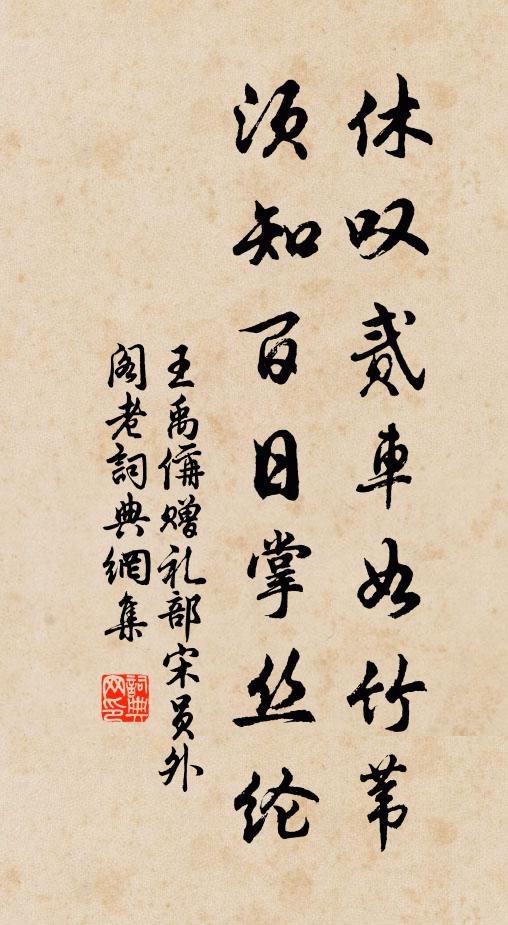 休叹贰车如竹苇
须知百日掌丝纶
王禹偁赠礼部宋员外
阁老詞典網集
詞典
网印